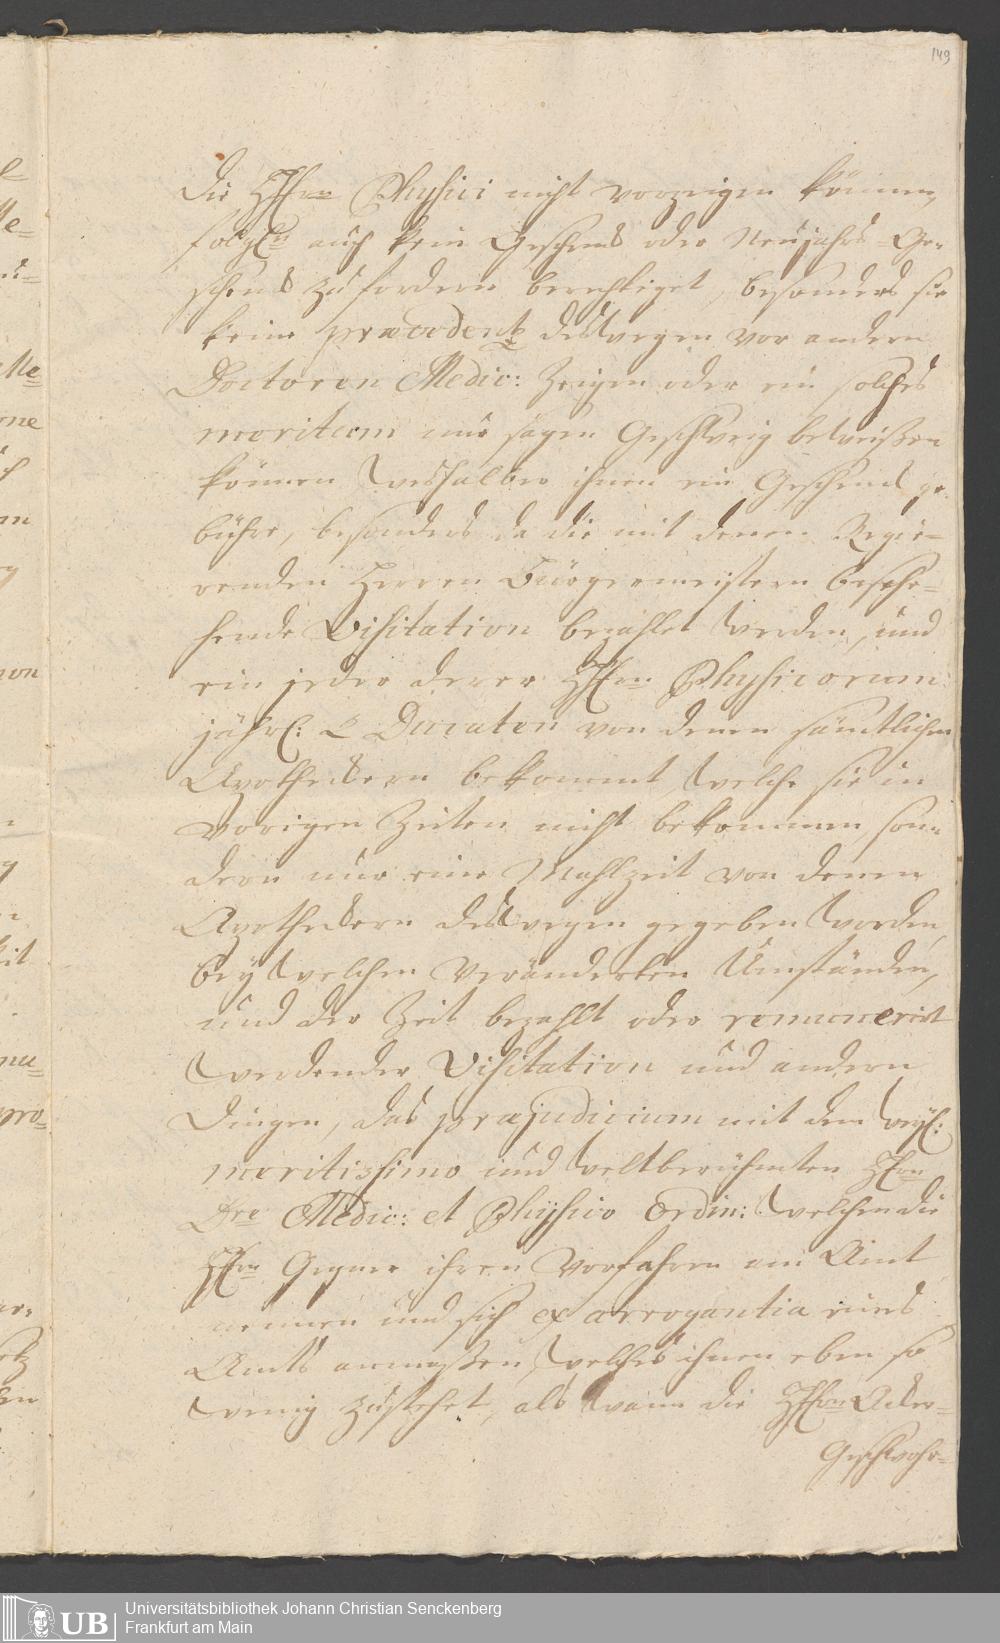 149
die HHrn Physici nicht vorzeigen können,
folgl. auch kein Geschenck oder Neujahrs-Ge-
schenck zu fordern berechtiget, besonders sie
keine præcedentz deßwegen vor andern
Doctoren Medic: zeigen oder ein solches
meritum nur sagen Geschweig beweißen
können weßhalben ihnen ein Geschenck ge-
bühre, besonders da die mit denen Regie-
renden Herren Bürgermeistern besche-
hende Visitation bezahlet werden, und
ein jeder derer HHrn Physicorum
jährl: 2 Ducaten von denen sämtlichen
Apotheckern bekommt welche sie in
vorigen Zeiten nicht bekommen, son-
dern nur eine Mahlzeit von denen
Apotheckern deßwegen gegeben worden,
bey welchen veränderten Umständen,
und der Zeit bezahlt oder remunerirt
werdender Visitation und andern
Dingen, das præjudicium mit dem weyl:
meritissimo und weltberühmten Hrn
Dre Medic: et Physico Ordin: welchen die
HHrn Gegner ihren Vorfahren am Amt
nennen und sich ex arrogantia eines
Amts anmaßen, welches ihnen eben so
wenig zustehet, als wann die HHrn Acker-
Geschwohr-
UB
Universitätsbibliothek Johann Christian Senckenberg
Frankfurt am Main